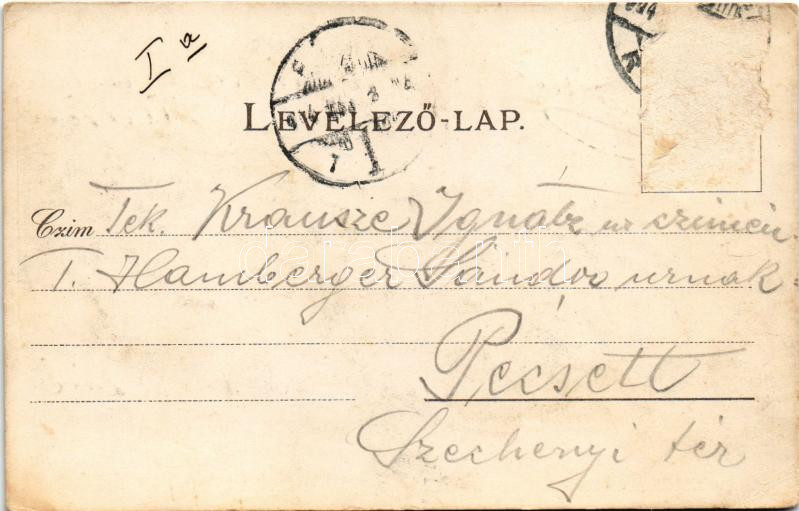 I a
LEVELEZŐ-LAP.
Czim Tek. Krausze Ignátz ur czimén
T. Hamberger Sándor urnak
Pécsett
Szechenyi tér